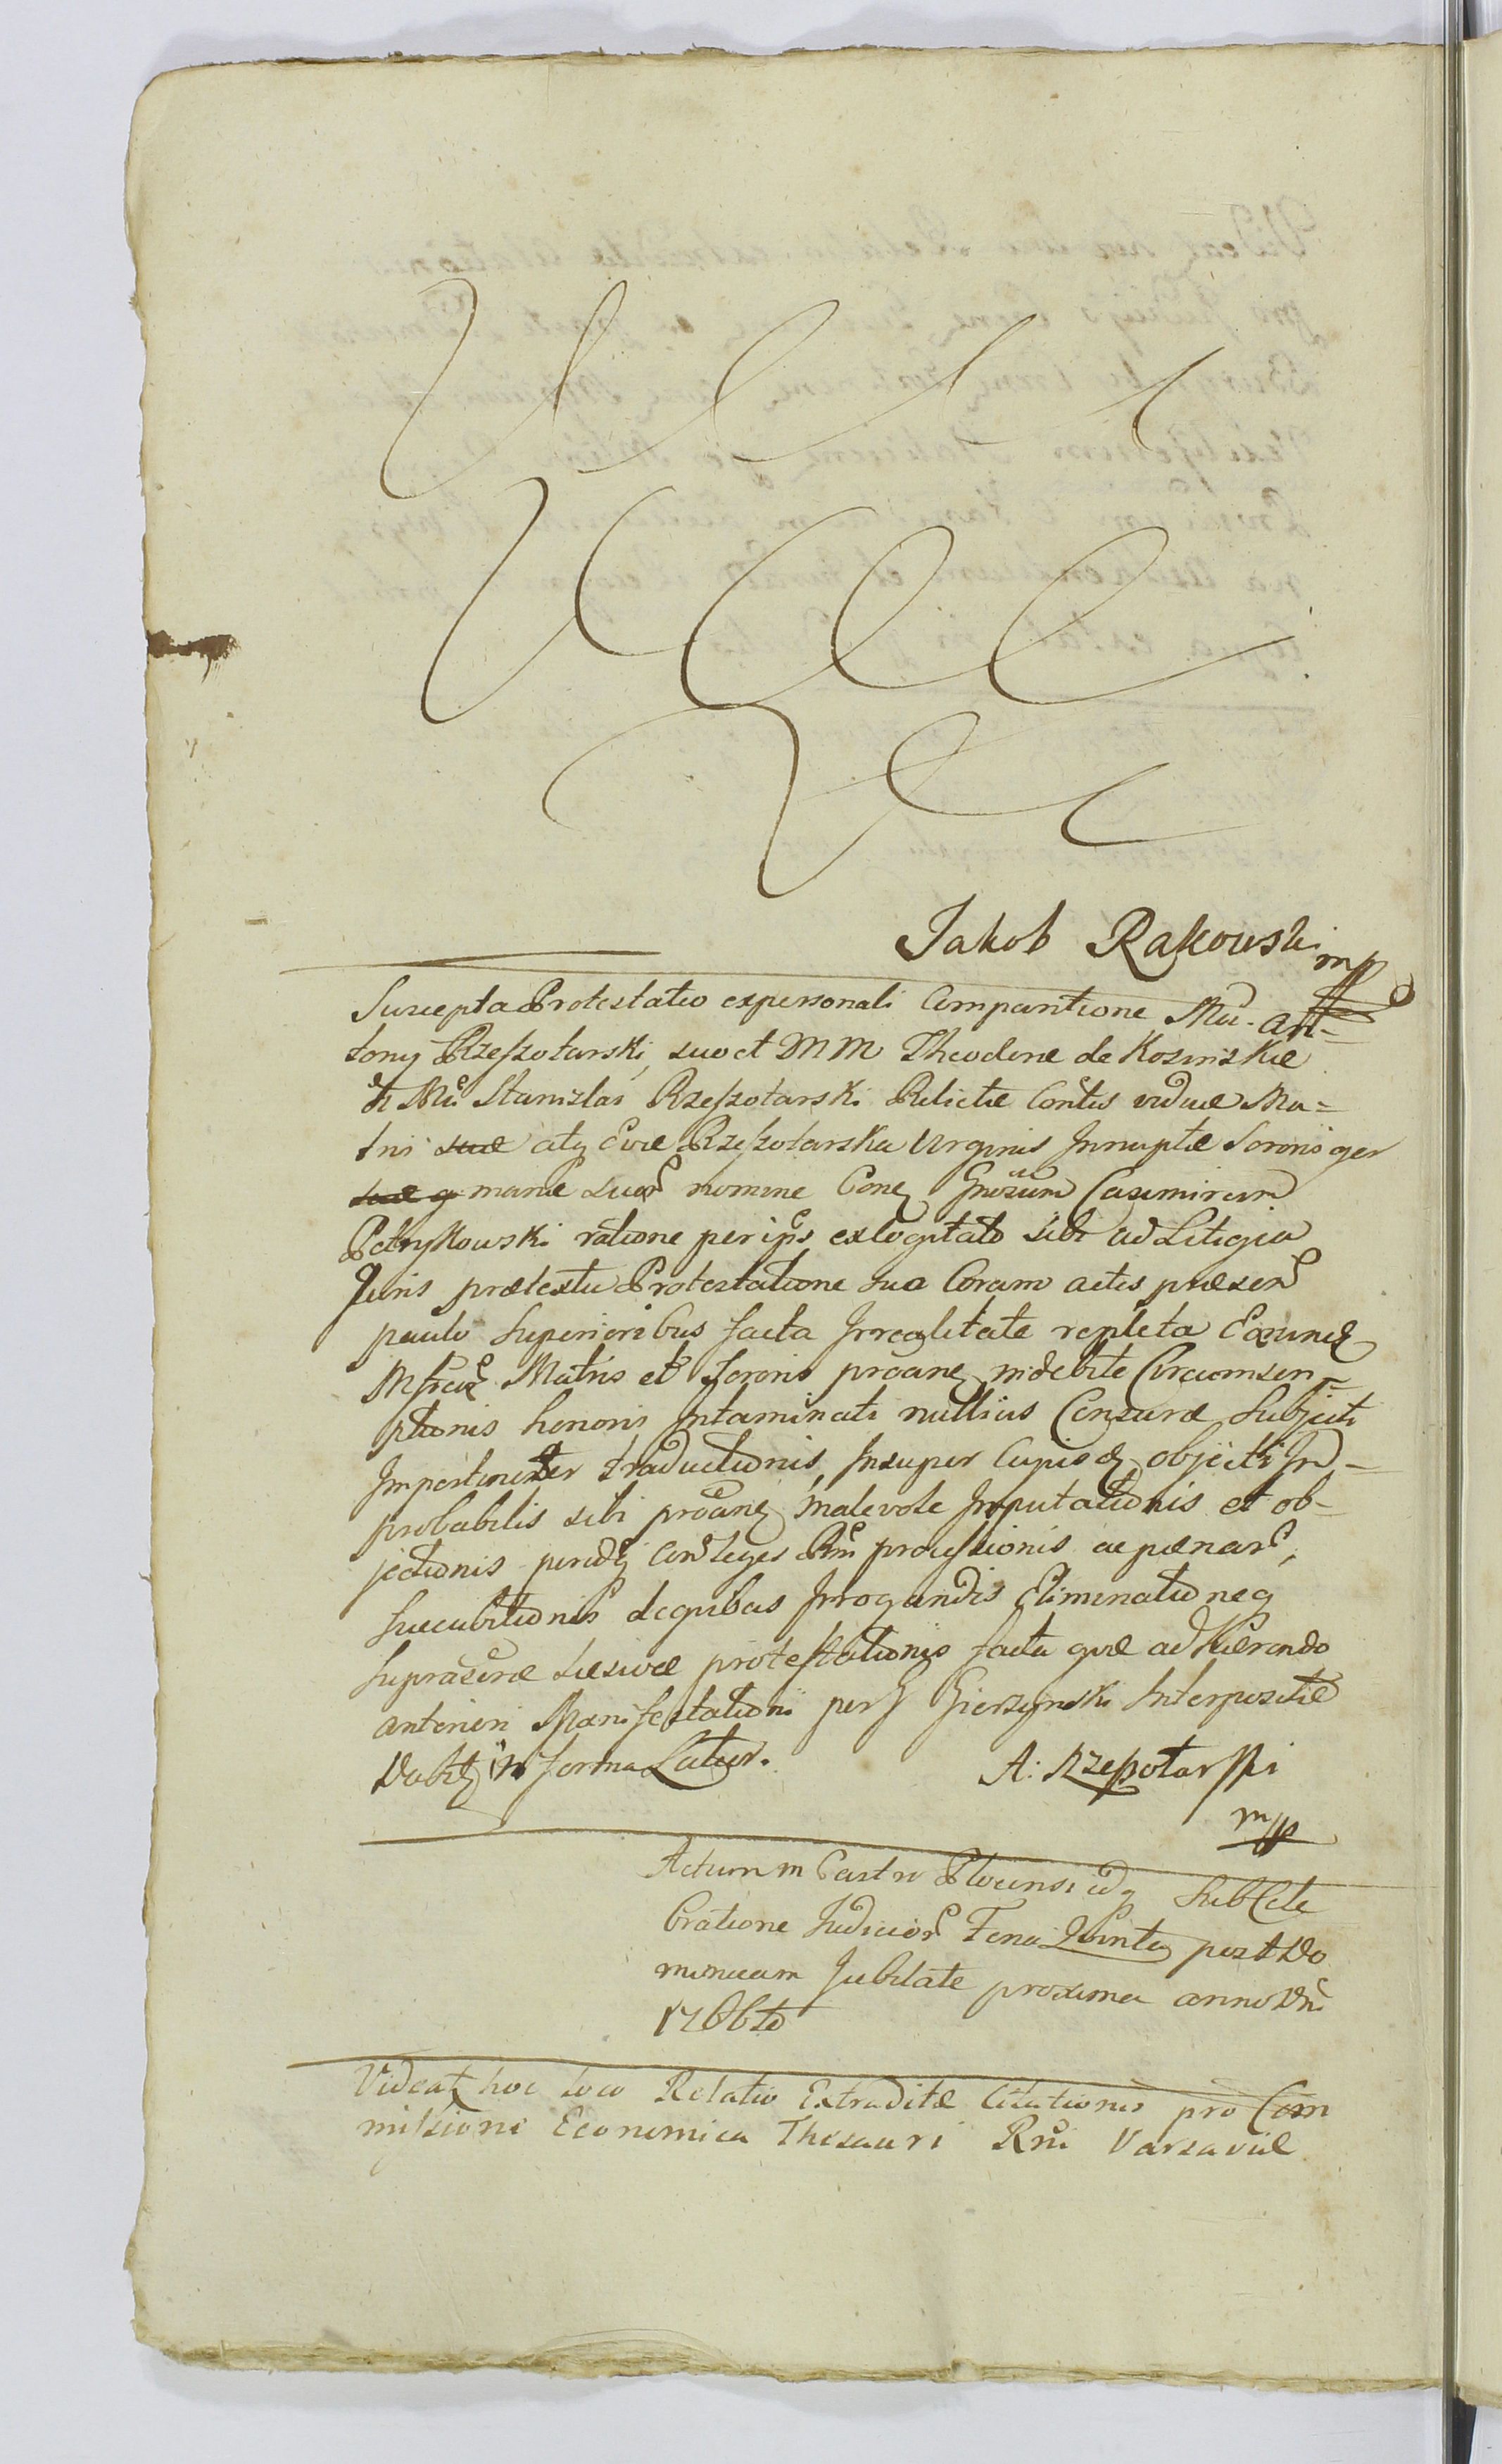 Jakob Rakowski
mp
Suscepta Protestatio expersonali Comparitione Mci. An=
tony Rzeszotarski, suo et MM Theodorae de Kosinskie
Mci Stanislai Rzeszotarski Relictae Contis viduae Ma=
tris suae atq Evae Rzeszotarska Virginis Innuptae Sororis ger
manae suor nomine Conq Gnosum Casimirum
Petrykowski ratione per ips excogitato sibi ad Litigia
Juris praetextu Protestatione sua Coram actis praesen
paulo Superioribus facta Irrealitate repleta Eamq
Matris et Sororis proanq indebite Circumscri=
ptionis honoris Intaminati nullius Censurae Subjecti
Impertinenter traductionis, Insuper Cujusq objecti Im=
probabilis sibi proanq malevole Imputationis et ob=
jectionis leges Rni processionis ac paenar,
Succubitionis de quibus Irrogandis Eliminationeq
Suprascrae Laesivae protestationis facta quae adhaerendo
anteriori Manifestationi per G Gierzynski Interpositae
Dabitq in forma Latior.
A: Rzeszotarski
mp
Actum in Castro Plocensi idq Sub Cele
bratione Judicior Feria Quinta post Do
minicam Jubilate proxima anno Dni
1766to
Videatq hoc loco Relatio Extraditae Citationis pro Com
missione Economica Thesauri Rni Varsaviae